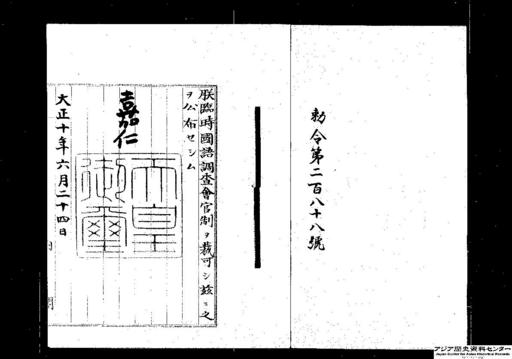 勅令第二百八十八號
朕臨時國語調査會官制ヲ裁可シ茲ニ之
ヲ公布セシム
嘉仁
天皇
御璽
大正十年六月二十四日
内閣
アジア歴史資料センター
Japan Center for Asian Historical Records